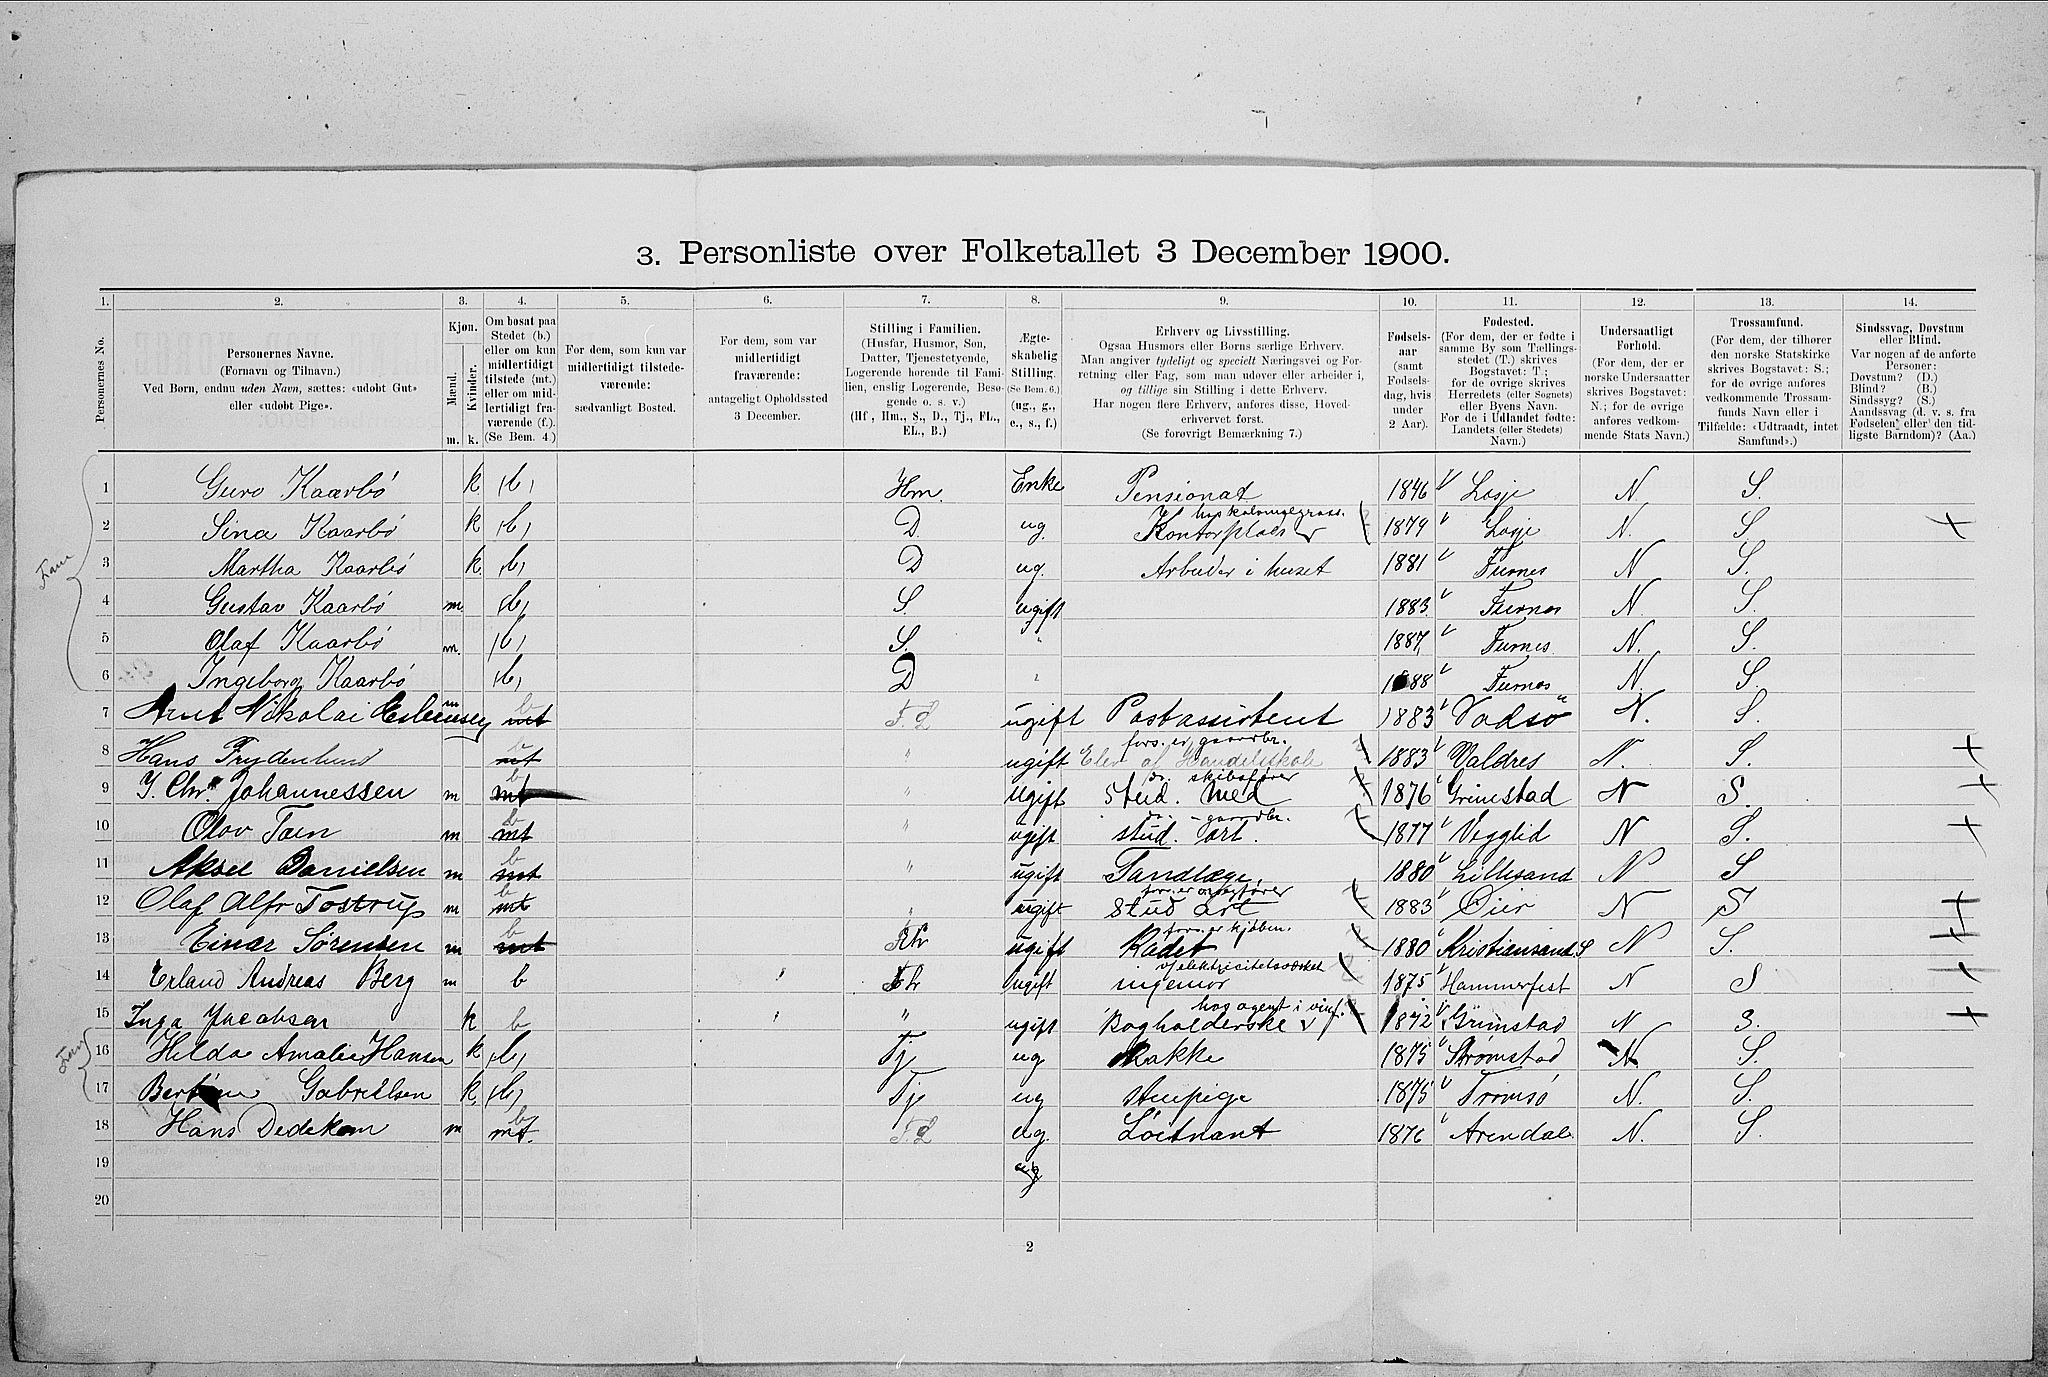 3. Personliste over Folketallet 3 December 1900.
1. 2. 3. 4. 5. 6. 7. 8. 9. 10. 11. 12. 13. 14.
Personernes No.
Personernes Navne.
(Fornavn og Tilnavn.)
Ved Børn, endnu uden Navn, sættes: «udøbt Gut»
eller «udøbt Pige».
Kjøn.
Mænd.
Kvinder.
m. k.
Om bosat paa
Stedet (b.)
eller om kun
midlertidigt
tilstede (mt.)
eller om mid-
lertidigt fra-
værende (f.).
(Se Bem. 4.)
For dem, som kun var
midlertidigt tilstede-
værende:
sædvanligt Bosted.
For dem, som var
midlertidigt
fraværende:
antageligt Opholdssted
3 December.
Stilling i Familien.
(Husfar, Husmor, Søn,
Datter, Tjenestetyende,
Logerende hørende til Fami-
lien, enslig Logerende, Besø-
gende o. s. v.)
(Hf., Hm., S., D., Tj., FL.,
EL., B.)
Ægte-
skabelig
Stilling.
(Se Bem. 6.)
(ug., g.,
e., s., f.)
Erhverv og Livsstilling.
Ogsaa Husmors eller Børns særlige Erhverv.
Man angiver tydeligt og specielt Næringsvei og For-
retning eller Fag, som man udøver eller arbeider i,
og tillige sin Stilling i dette Erhverv.
Har nogen flere Erhverv, anføres disse, Hoved-
erhvervet først.
(Se forøvrigt Bemærkning 7.)
Fødsels-
aar
(samt
Fødsels-
dag, hvis
under
2 Aar).
Fødested.
(For dem, der er fødte i
samme By som Tællings-
stedet (T.) skrives
Bogstavet: T.;
for de øvrige skrives
Herredets (eller Sognets)
eller Byens Navn.
For de i Udlandet fødte:
Landets (eller Stedets)
Navn.)
Undersaatligt
Forhold.
(For dem, der er
norske Undersaatter
skrives Bogstavet:
N.; for de øvrige
anføres vedkom-
mende Stats Navn.)
Trossamfund.
(For dem, der tilhører
den norske Statskirke
skrives Bogstavet: S.;
for de øvrige anføres
vedkommende Trossam-
funds Navn eller i
Tilfælde: «Udtraadt, intet
Samfund».)
Sindssvag, Døvstum
eller Blind.
Var nogen af de anførte
Personer:
Døvstum? (D.)
Blind? (B.)
Sindssyg? (S.)
Aandssvag (d. v. s. fra
Fødselen eller den tid-
ligste Barndom)? (Aa.)
1 Guro Kaarbö k b, Hm. Enke Pensionat 1846 Losje N. S.
2 Sina Kaarbö k b, D. ug. Kontorplads 1879 Losje N. S
3 Martha Kaarbö k b, D ug. Arbeider i huset 1881 Furnes N S.
4 Gustav Kaarbö m. b, S. ugift 1883 Furnes N. S.
5 Olaf Kaarbö m. b, S. " 1887 Furnes N. S.
6 Ingeborg Kaarbö b, D " 1888 Furnes N. S
7 Arnt Nikolai m mt b F. L ugift Postassistent 1883 Vadsö N. S.
fors. er gaardbr.
8 Hans Frydenlund mt " ugift Elev af Handelsskole 1883 Valdres N. S.
do. skibsfører
9 J. Chr. Johannessen m mt b " ugift Stud. Med 1876 Grimstad N S.
do. - gaardbr.
10 Olov Toen m mt b " ugift stud. art. 1877 Vegglid N S.
11 Aksel Danielsen m mt b " ugift Tandlæge, 1880 Lillesand N S
12 Olaf Alfr Tostrup m mt b " ugift stud art 1883 Öier N S
fors. er kjøbm.
13 Einar Sørensen m mt b ugift Kadet 1880 Kristiansand S N S.
v/elektricitetsværket
14 Erland Andreas Berg m b ugift ingeniør 1875 Hammerfest N S
hos agent i vinf.
15 Inga Jacobsen k b " ugift Bogholderske 1872 Grimstad N S.
16 Hilda Amalie Hansen k b, Tj ug Kokke 1875 Strømstad N. S.
17 Gabrielsen k b, Tj ug stuepige 1875 Tromsö N. S.
18 Hans Dedekam m mt. b F. L ug. Löitnant 1876 Arendal N. S.
19 ug
20
Fam
Fam
2